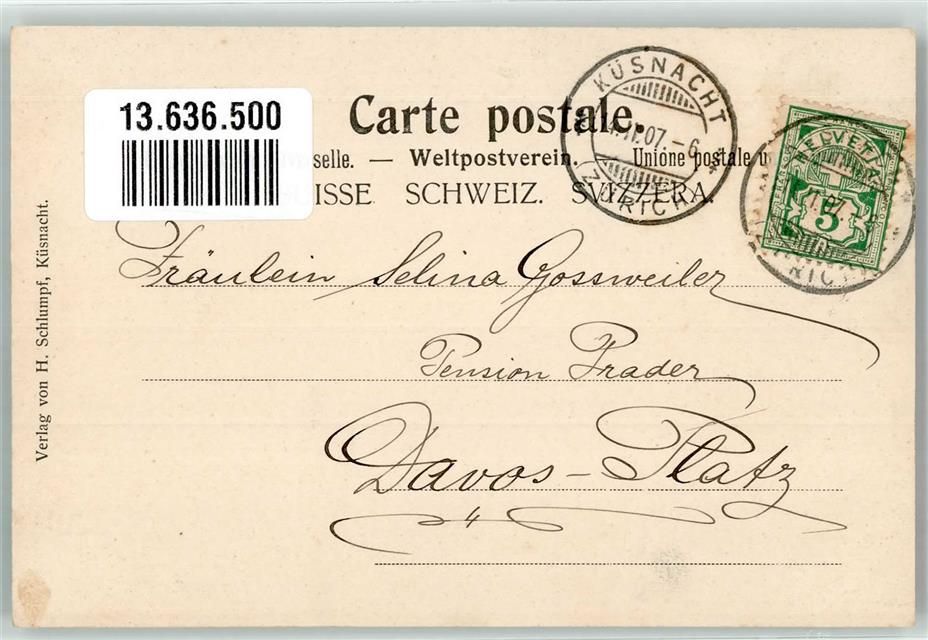 13.636.500
Carte postale.
selle. — Weltpostverein. Unione postale u
UISSE SCHWEIZ. SVIZZERA.
KÜSNACHT
07. - 6
ZÜRICH
HELVETIA
5
Fräulein Selina Gossweiler
Pension Prader
Davos-Platz
Verlag von H. Schlumpf, Küsnacht.